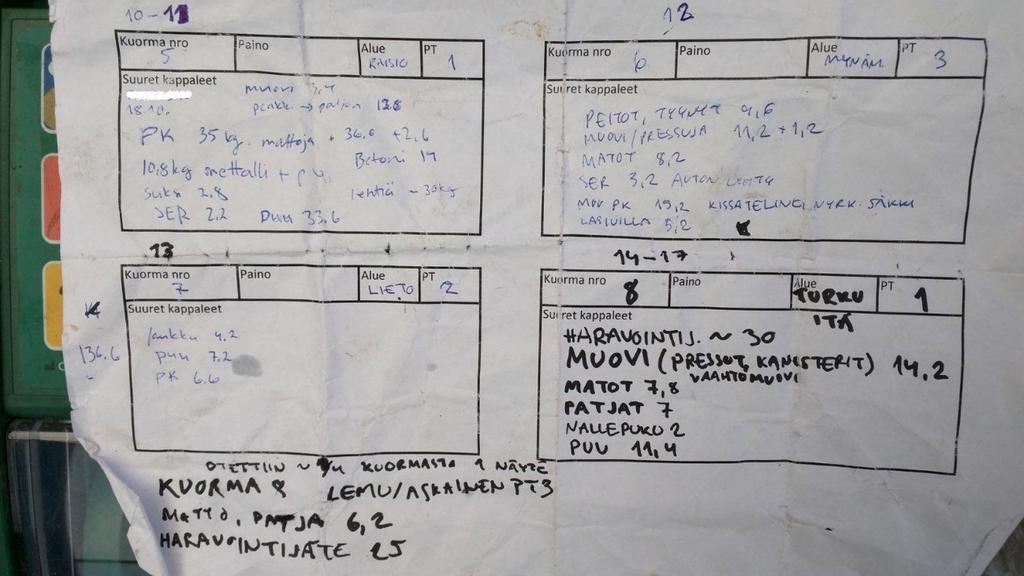 10-11
Kuorma nro 5 Paino Alue RAISIO PT 1
Suuret kappaleet
muovi 3,4
18.10. paljon 128
PK 35 kg. mattoja + 36.6 + 2.6
10,8kg metalli + pu Betoni 17
Suksi 2.8 lehtiä ~ 30kg
SER 2.2 puu 33.6
12
Kuorma nro 6 Paino Alue MYNÄM PT 3
Suuret kappaleet
PEITOT, TYYNYT 4,6
MUOVI/PRESSUJA 11,2 + 1,2
MATOT 8,2
SER 3,2 AUTON
MUU PK 19,2 KISSATELINE, NYRK. SÄKKI
LASIVILLA 5,2
13
Kuorma nro 7 Paino Alue LIETO PT 2
Suuret kappaleet
lankku 4.2
136.6 puu 7.2
PK 6.6
14-17
Kuorma nro 8 Paino Alue TURKU ITÄ PT 1
Suuret kappaleet
HARAVOINTIJ. ~ 30
MUOVI (PRESSUT, KANISTERIT) 14,2
VAAHTOMUOVI
MATOT 7,8
PATJAT 7
NALLEPUKU 2
PUU 11,4
OTETTIIN ~ KUORMASTA 1 NÄYTE
KUORMA 8 LEMU/ASKAINEN PT3
MATTO, PATJA 6,2
HARAVOINTIJÄTE 25